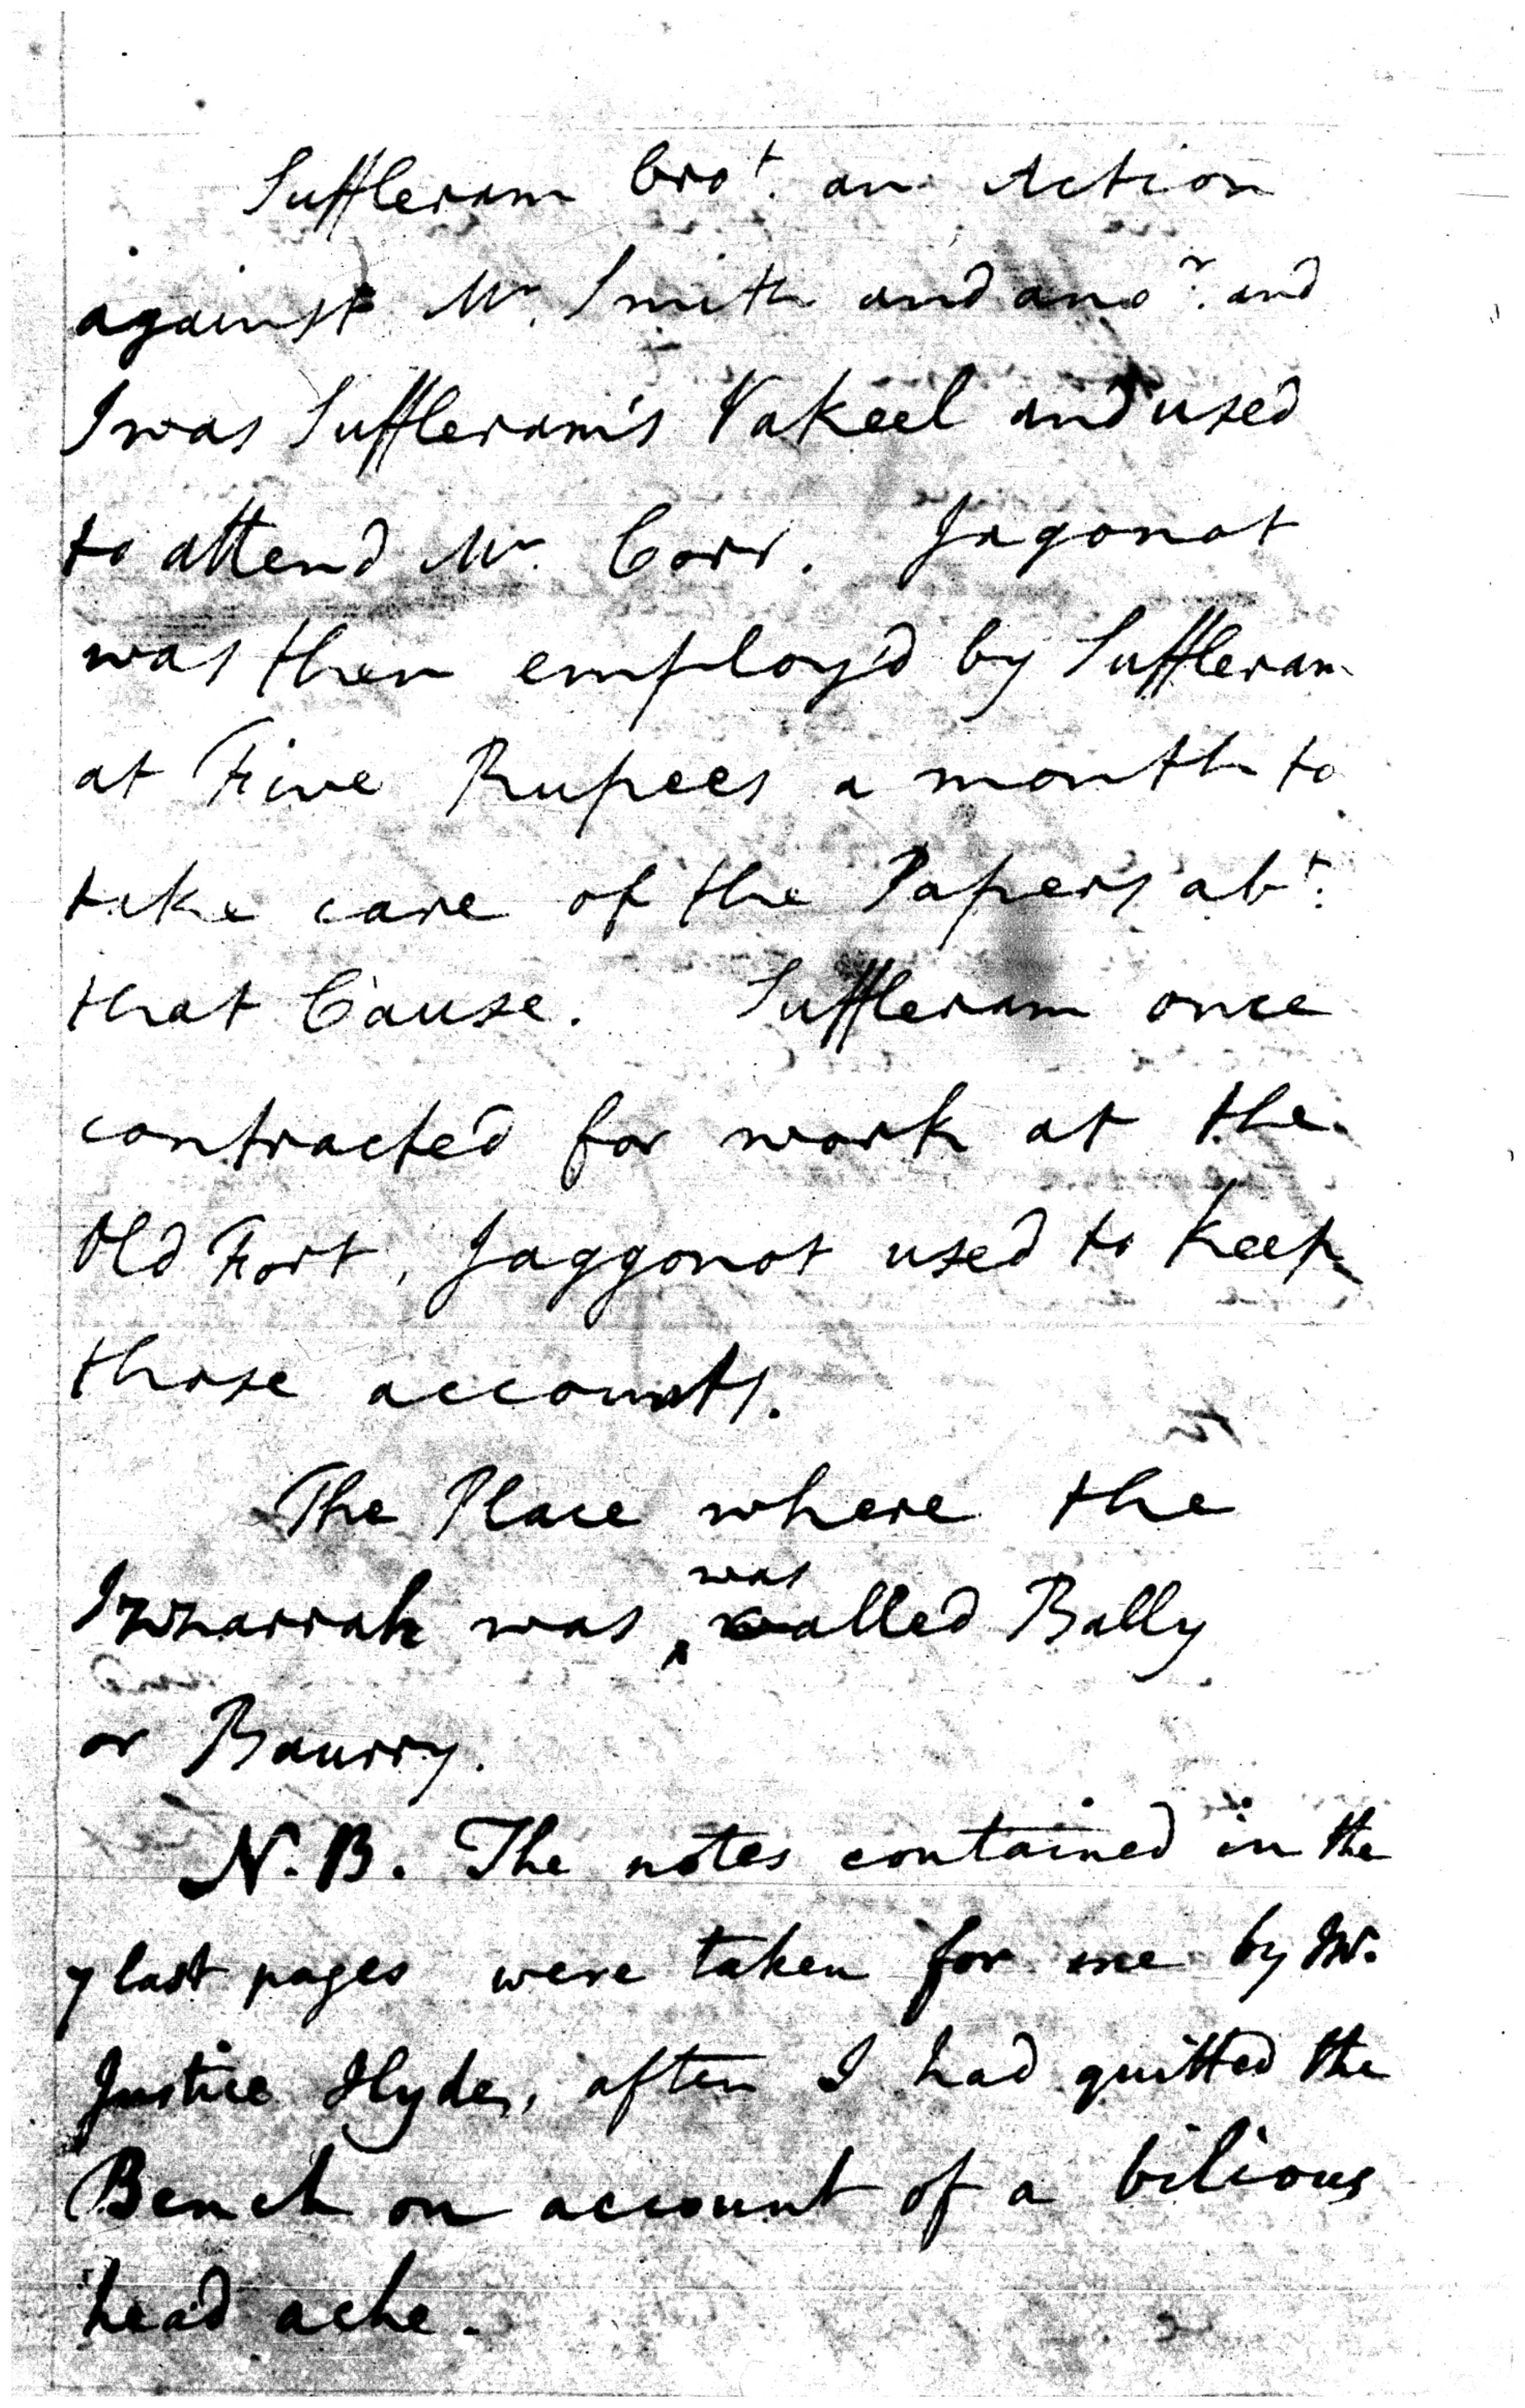 Suffleram bro^t. an Action
against Mr. Smith and ano^r. and
I was Suffleram's Vakeel and used
to attend Mr. Corr. Jagonat
was then employ'd by Suffleram
at Five Rupees a month to
take care of the Papers ab^t.
that Cause. Suffleram once
contracted for work at the
Old Fort, Jaggonot used to keep
those accounts.
The Place where the
was
Izzarrah was called Bally
or Baurry.
N.B. The notes contained in the
7 last pages were taken for me by Mr.
Justice Hyde, after I had quitted the
Bench on account of a bilious
head ache.